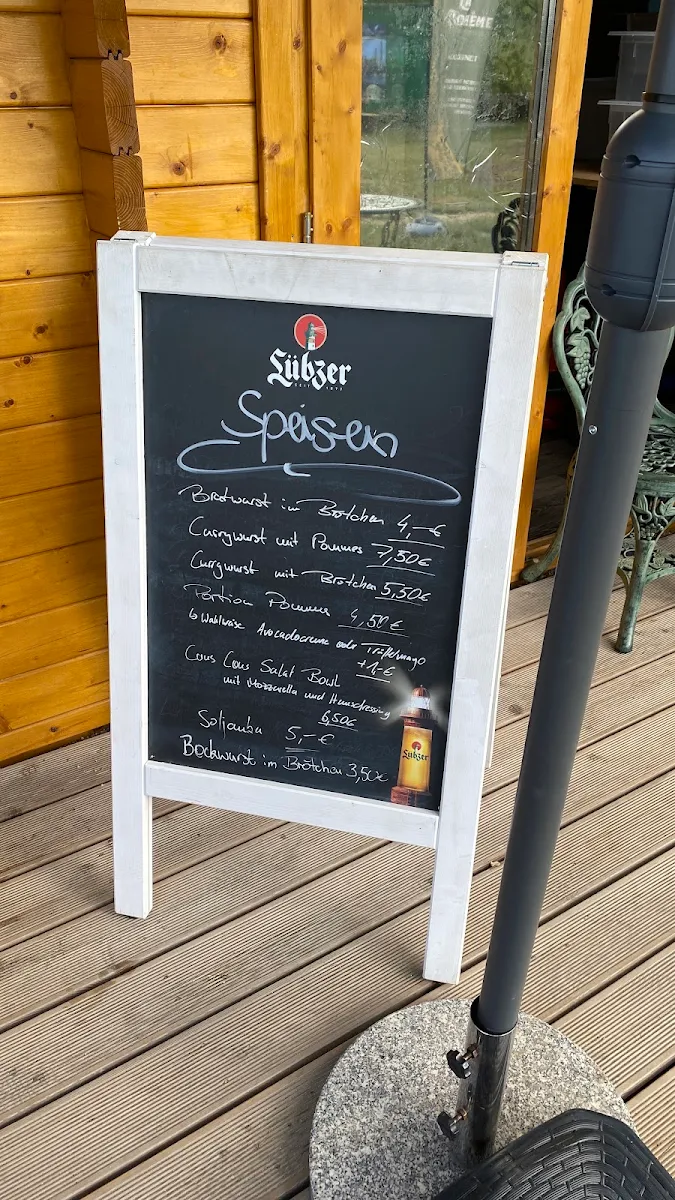 Lübzer
SEIT 1877
Speisen
Bratwurst im Brötchen 4,-€
Currywurst mit Pommes 7,50€
Currywurst mit Brötchen 5,50€
Portion Pommes 4,50€
↳ Wahlweise Avocadocreme oder Trüffelmayo
+1,-€
Cous Cous Salat Bowl
mit Mozzarella und Hausdressing
6,50€
Soljanka 5,-€
Bockwurst im Brötchen 3,50€
Lübzer